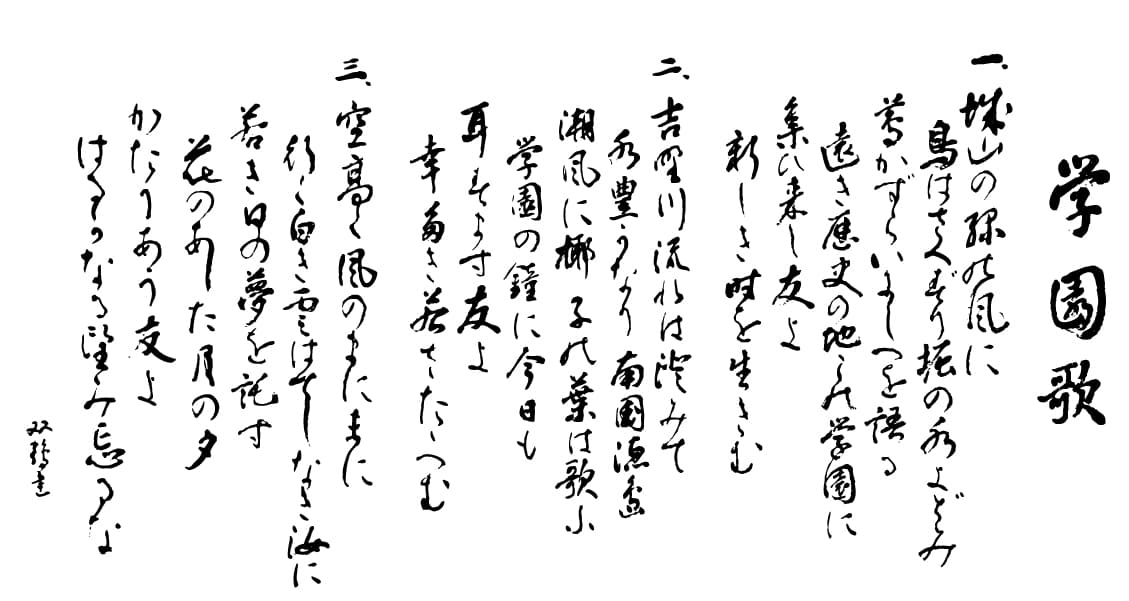 学園歌
一、城山の緑の風に
鳥はさへずり堀の水よどみ
蔦かずらいにしへを語る
遠き歴史の地この学園に
集ひ来し友よ
新しき時を生きむ
二、吉野川流れは澄みて
水豊かなり南国徳島
潮風に椰子の葉は歌ふ
学園の鐘に今日も
耳すます友よ
幸多き若さたたへむ
三、空高く風のまにまに
行く白き雲はてしなき海に
若き日の夢を託す
花のあした月の夕
かたりあう友よ
はるかなる望み忘るな